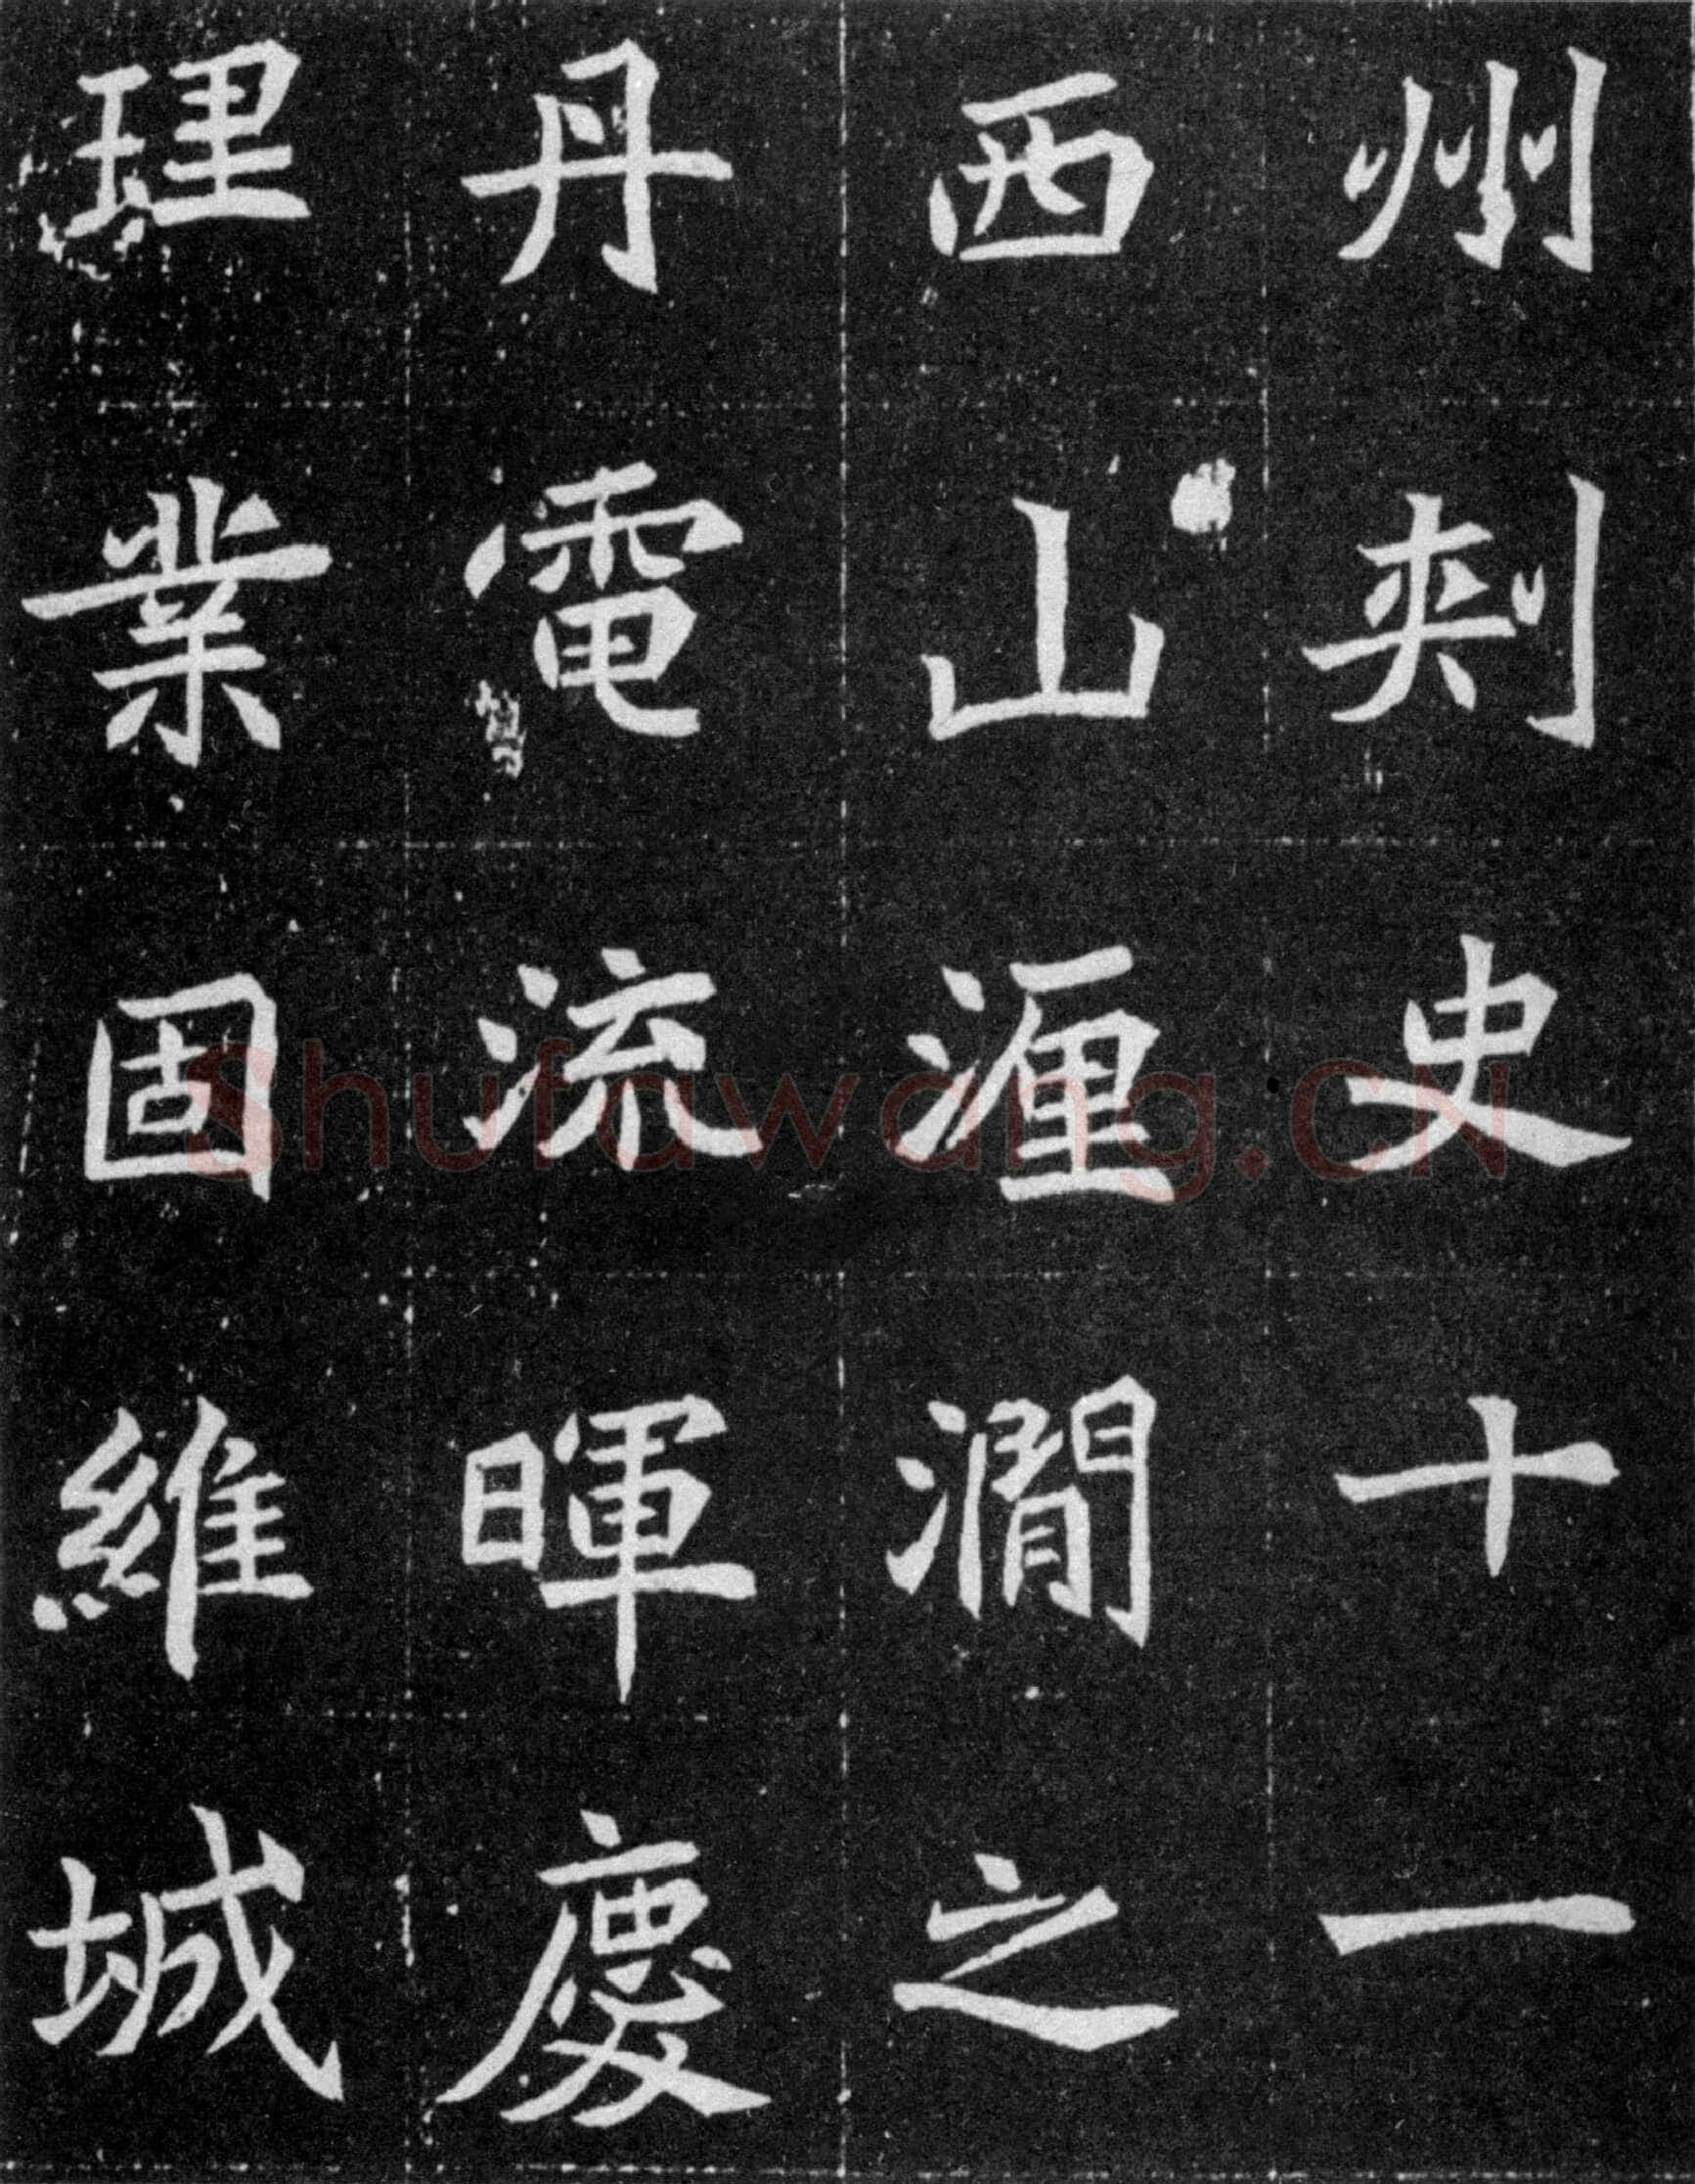 州刺史十一
西山瀍澗之
丹電流暉慶
理業固維城
Shufawang.CN